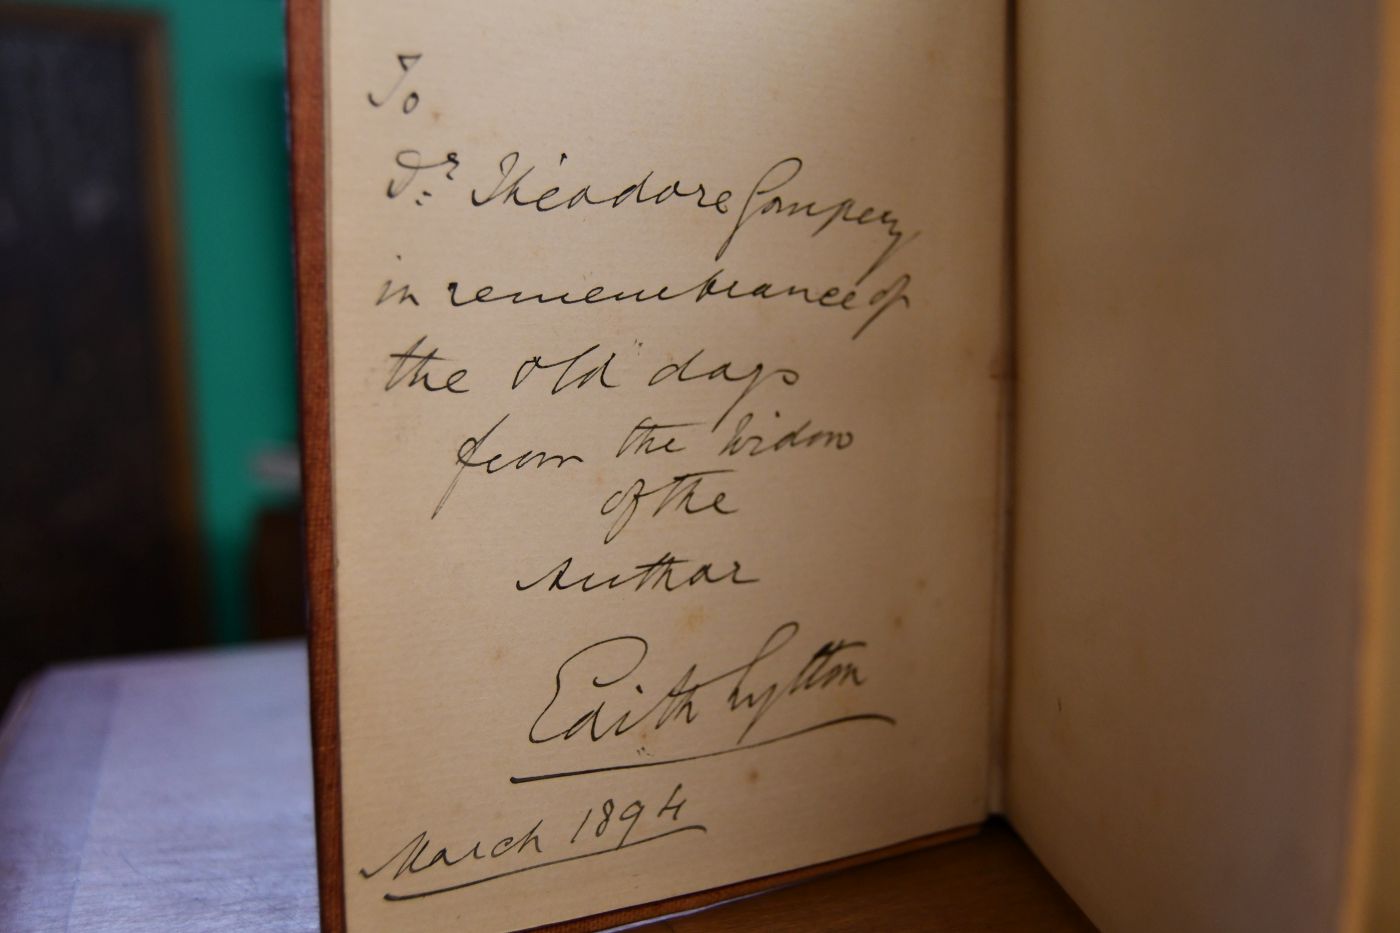 To
Dr Théodore Gomperz
in remembrance of
the old days
from the Widow
of the
Author
Edith Lytton
March 1894